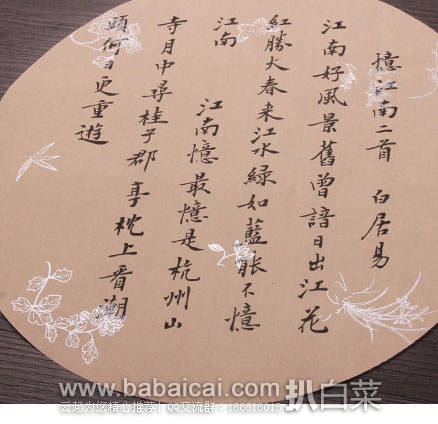 憶江南二首 白居易
江南好風景舊曾諳日出江花
紅勝火春来江水綠如藍能不憶
江南
江南憶最憶是杭州山
寺月中尋桂子郡亭枕上看潮
頭何日更重遊
www.babaicai.com 扒白菜
云起为您精心推荐 | QQ交流群：168618018